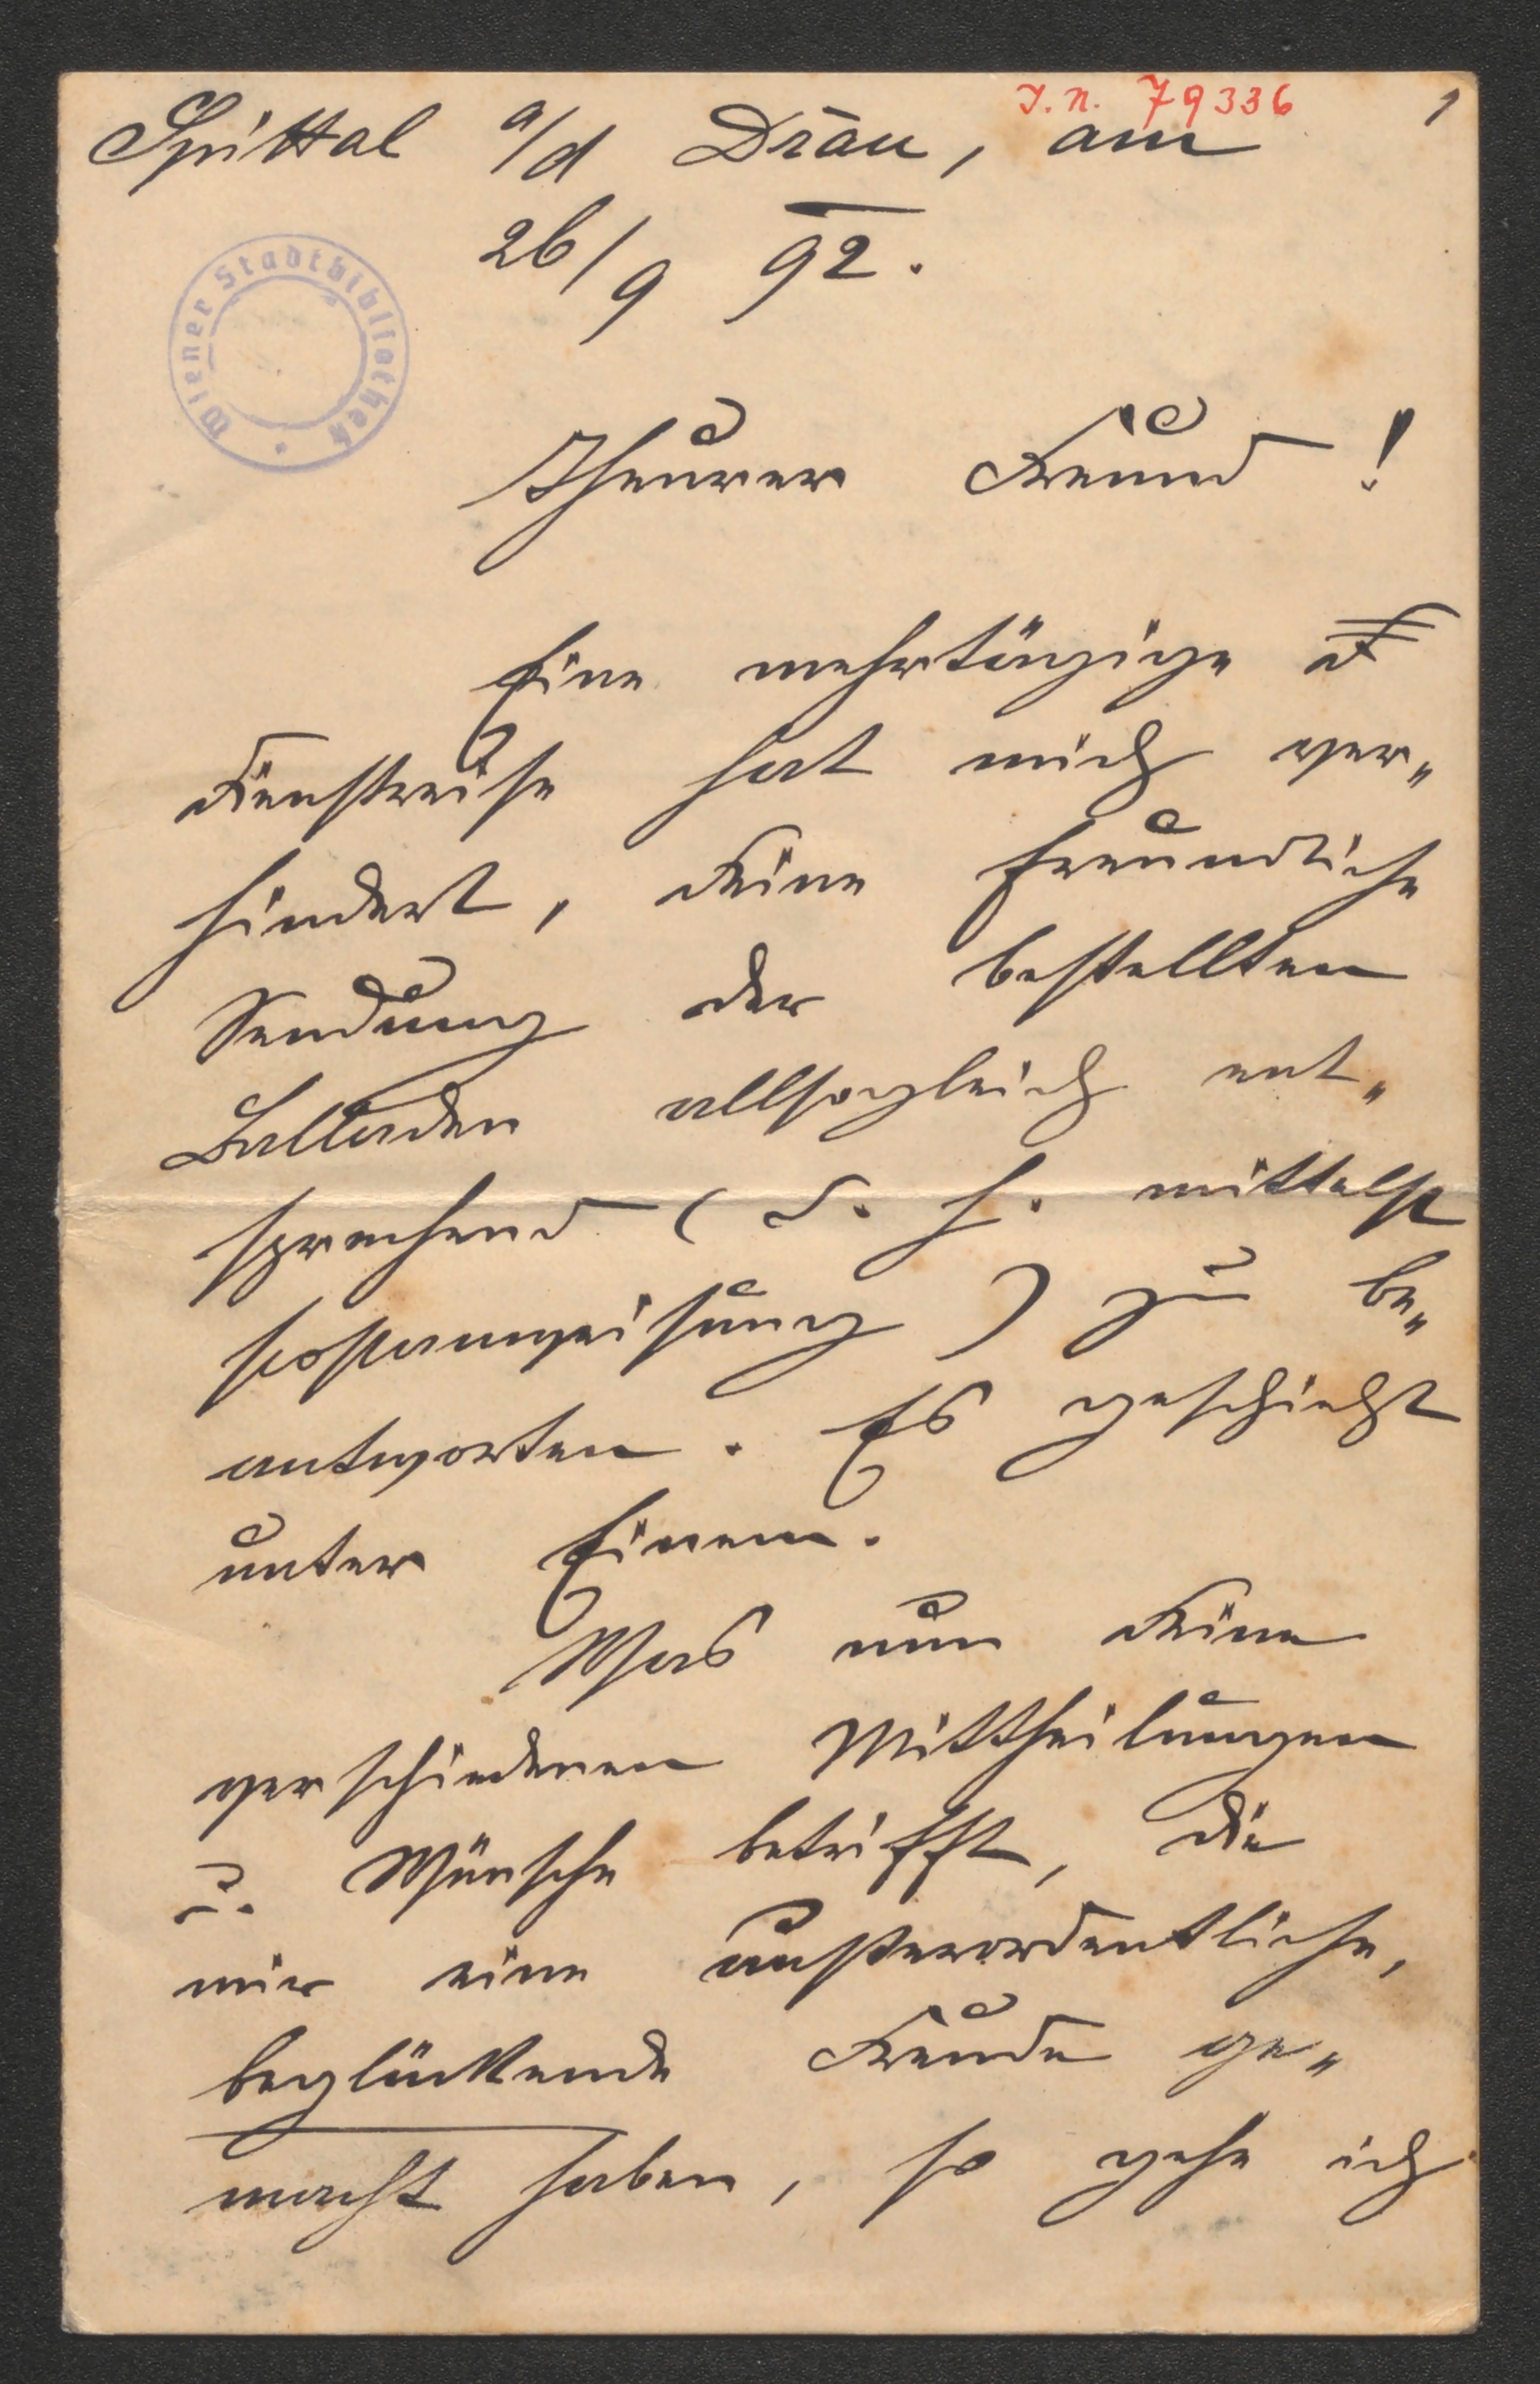 J. N. 79336
1
Spittal a/d Drau, am
26/9 92.
Wiener Stadtbibliothek
Theurer Freund!
Eine mehrtägige
Dienstreise hat mich ver„
hindert, Deine freundliche
Sendung der bestellten
Balladen allsogleich ent„
sprechend (d. h. mittelst
Postanweisung) zu be„
antworten. Es geschieht
unter Einem.
Was nun Deine
verschiedenen Mittheilungen
u. Wünsche betrifft, die
mir eine außerordentliche,
beglückende Freude ge„
macht haben, so gehe ich